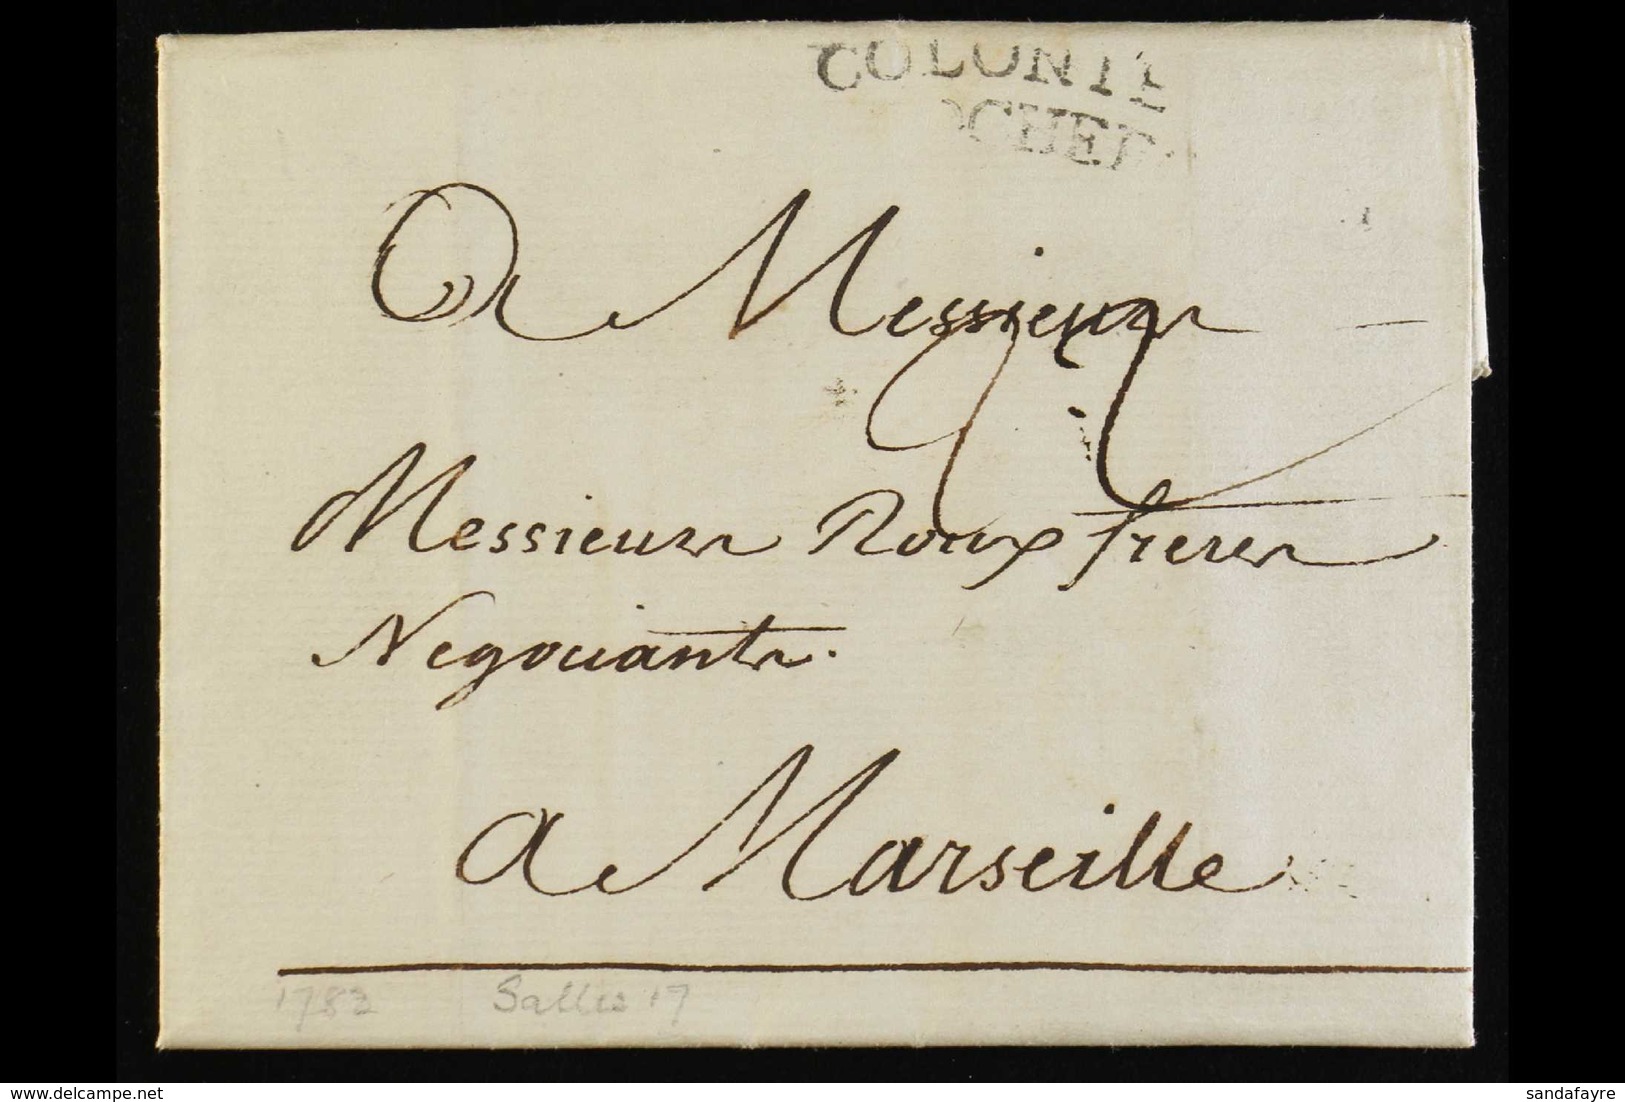 COLONIE
OCHEF
A Messieurs
Messieurs Roux freres
Negociants.
a Marseille
1783 Salles 17
sandafayre